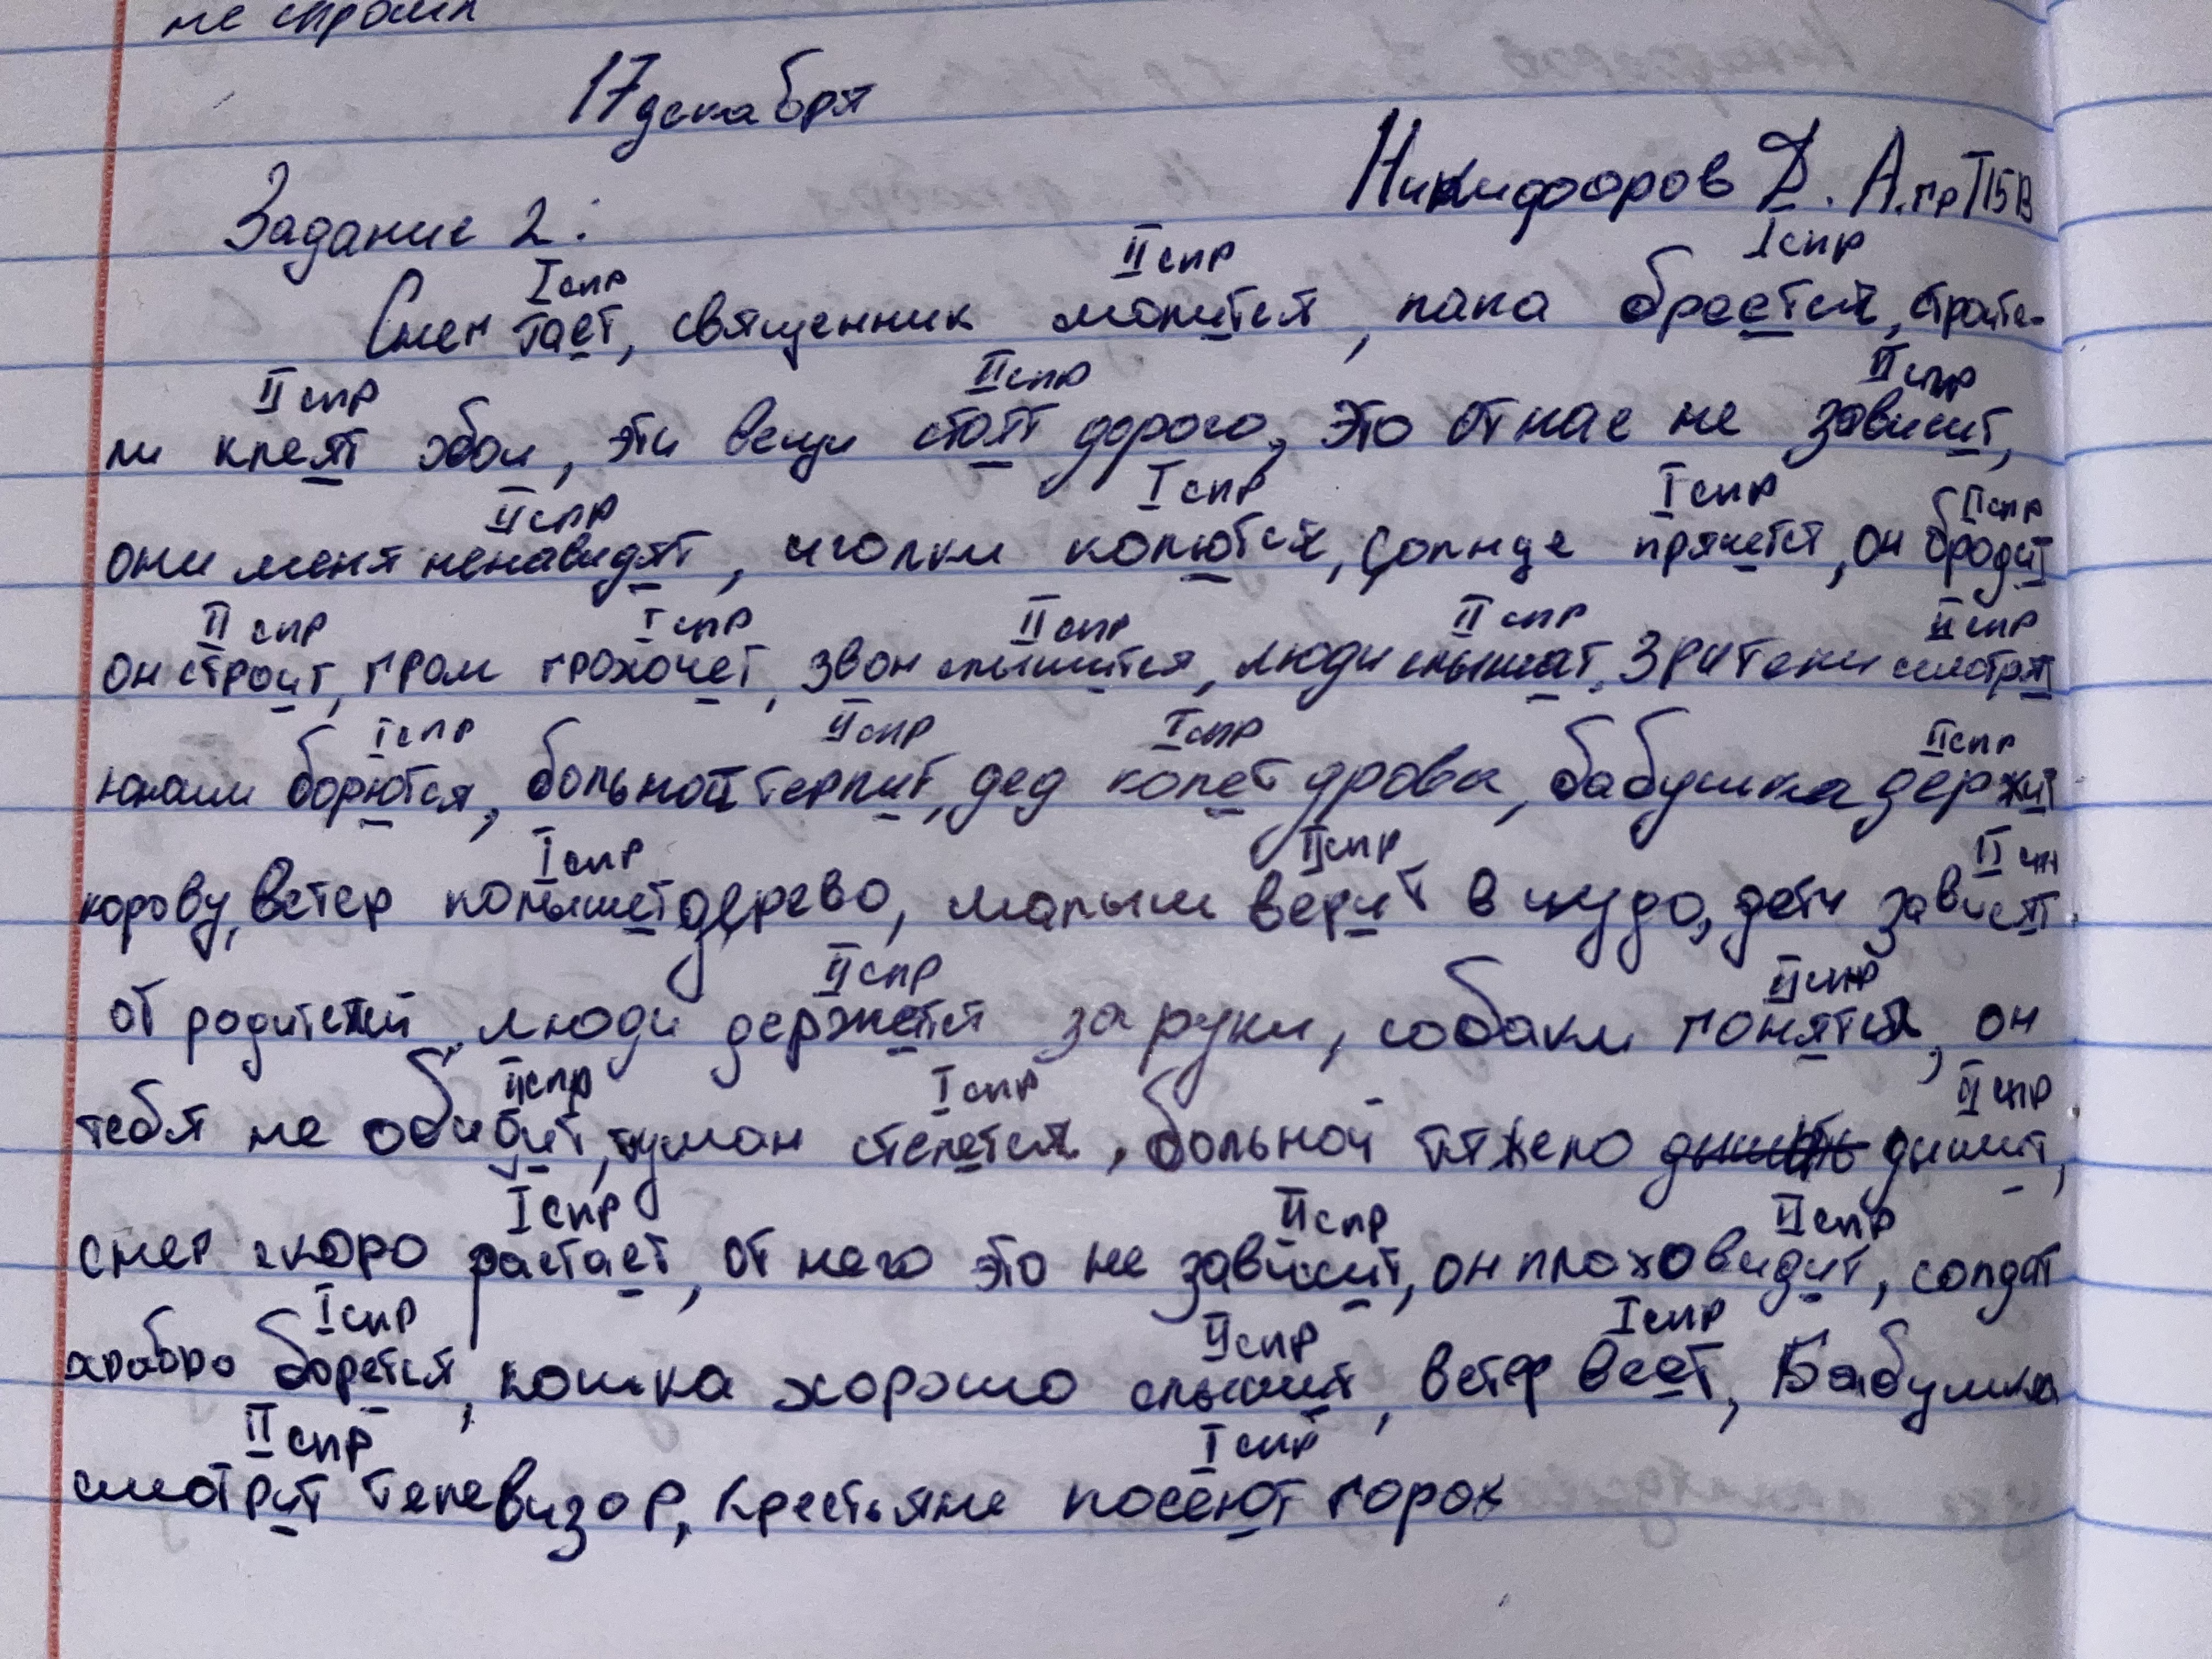 не спрами
17 декабря
Никифоров Д. А. гр Т15В
Задание 2:
I спр II спр I спр
Снег тает, священник молится, папа бреется, строите-
II спр II спр II спр
ли клеят обои, эти вещи стоят дорого, это от нас не зависит,
II спр I спр I спр II спр
они меня ненавидят, иголки колются, солнце прячется, он бродит
II спр I спр II спр II спр II спр
он строит, гром грохочет, звон слышится, люди слышат, зрители смотрят
I спр II спр I спр II спр
юноши борются, больной терпит, дед колет дрова, бабушка держит
I спр II спр II спр
корову, ветер колышет дерево, малыш верит в чудо, дети зависят
II спр II спр
от родителей люди держетя за руки, собаки гонятся, он
II спр I спр II спр
тебя не обидит, туман стелется, больной тяжело дышит,
I спр II спр II спр
снег скоро растает, от него это не зависит, он плохо видит, солдат
I спр II спр I спр
храбро борется, кошка хорошо слышит, ветер веет, Бабушка
II спр I спр
смотрит телевизор, крестьяне посеют горох